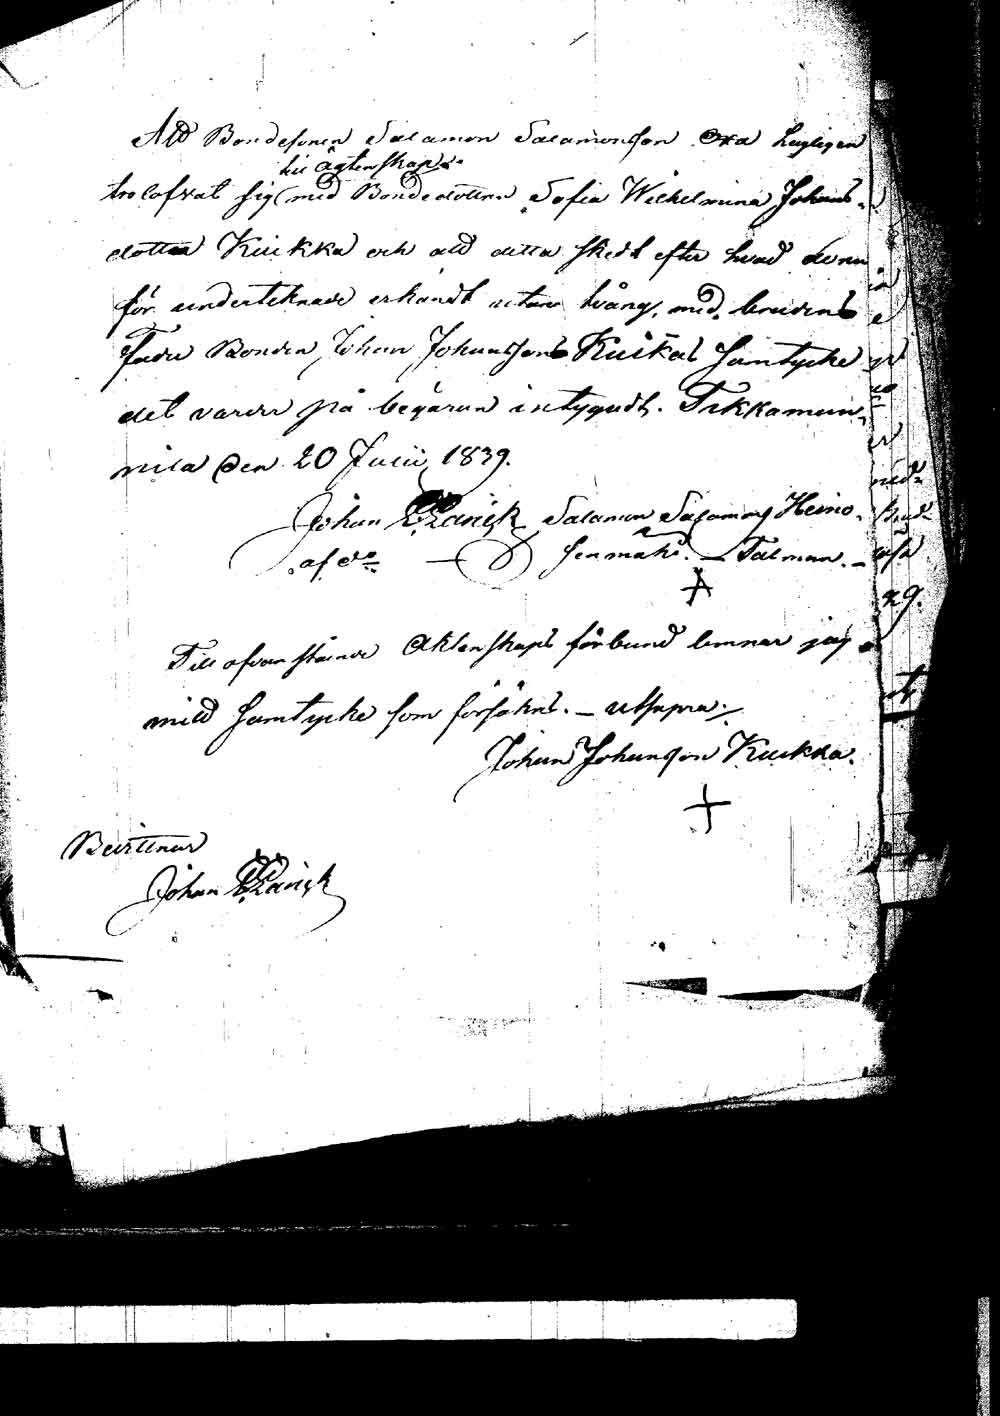 Att Bondesonen Salamon Salamonsson Oxa lagligen
till ägtenskap
trolofvat sig med Bondedottren Sofia Wilhelmina Johans-
dotter Kuikka och att detta skedt efter hvad denne
för undertecknade erkändt utan tvång, med brudens
Fader Bonden Johan Johansson Kuikas samtycke
det varder på begäran intygadt. Tikkaman-
nila den 20 Julii 1839.
Johan Salamon Salamons Heino-
af do senmäki. Talman.
Till ofvanstående Äktenskaps förbund lemnar jag
mitt samtycke som försäkras. utsupra.
Johan Johansson Kuikka.
Bevittnar
Johan